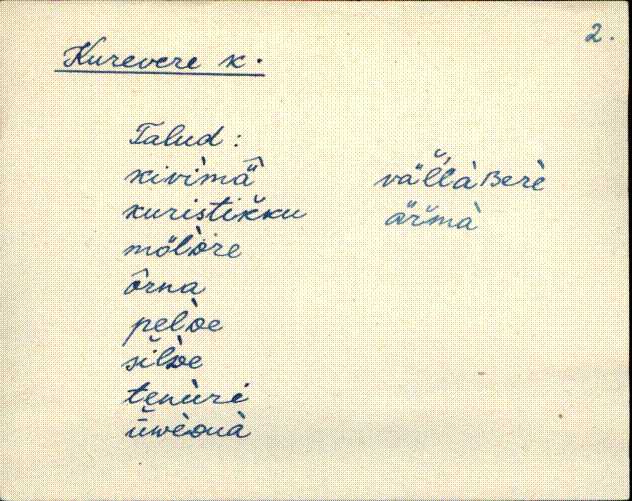 2.
Kurevere k.
Talud:
kivìmä̂
kuristik̆ku
mölᴅre
ôrna
pelᴅe
sĭlᴅe
tenùrì
ũwèᴅuà
väl̆'l̀àʙerè
är̆mà